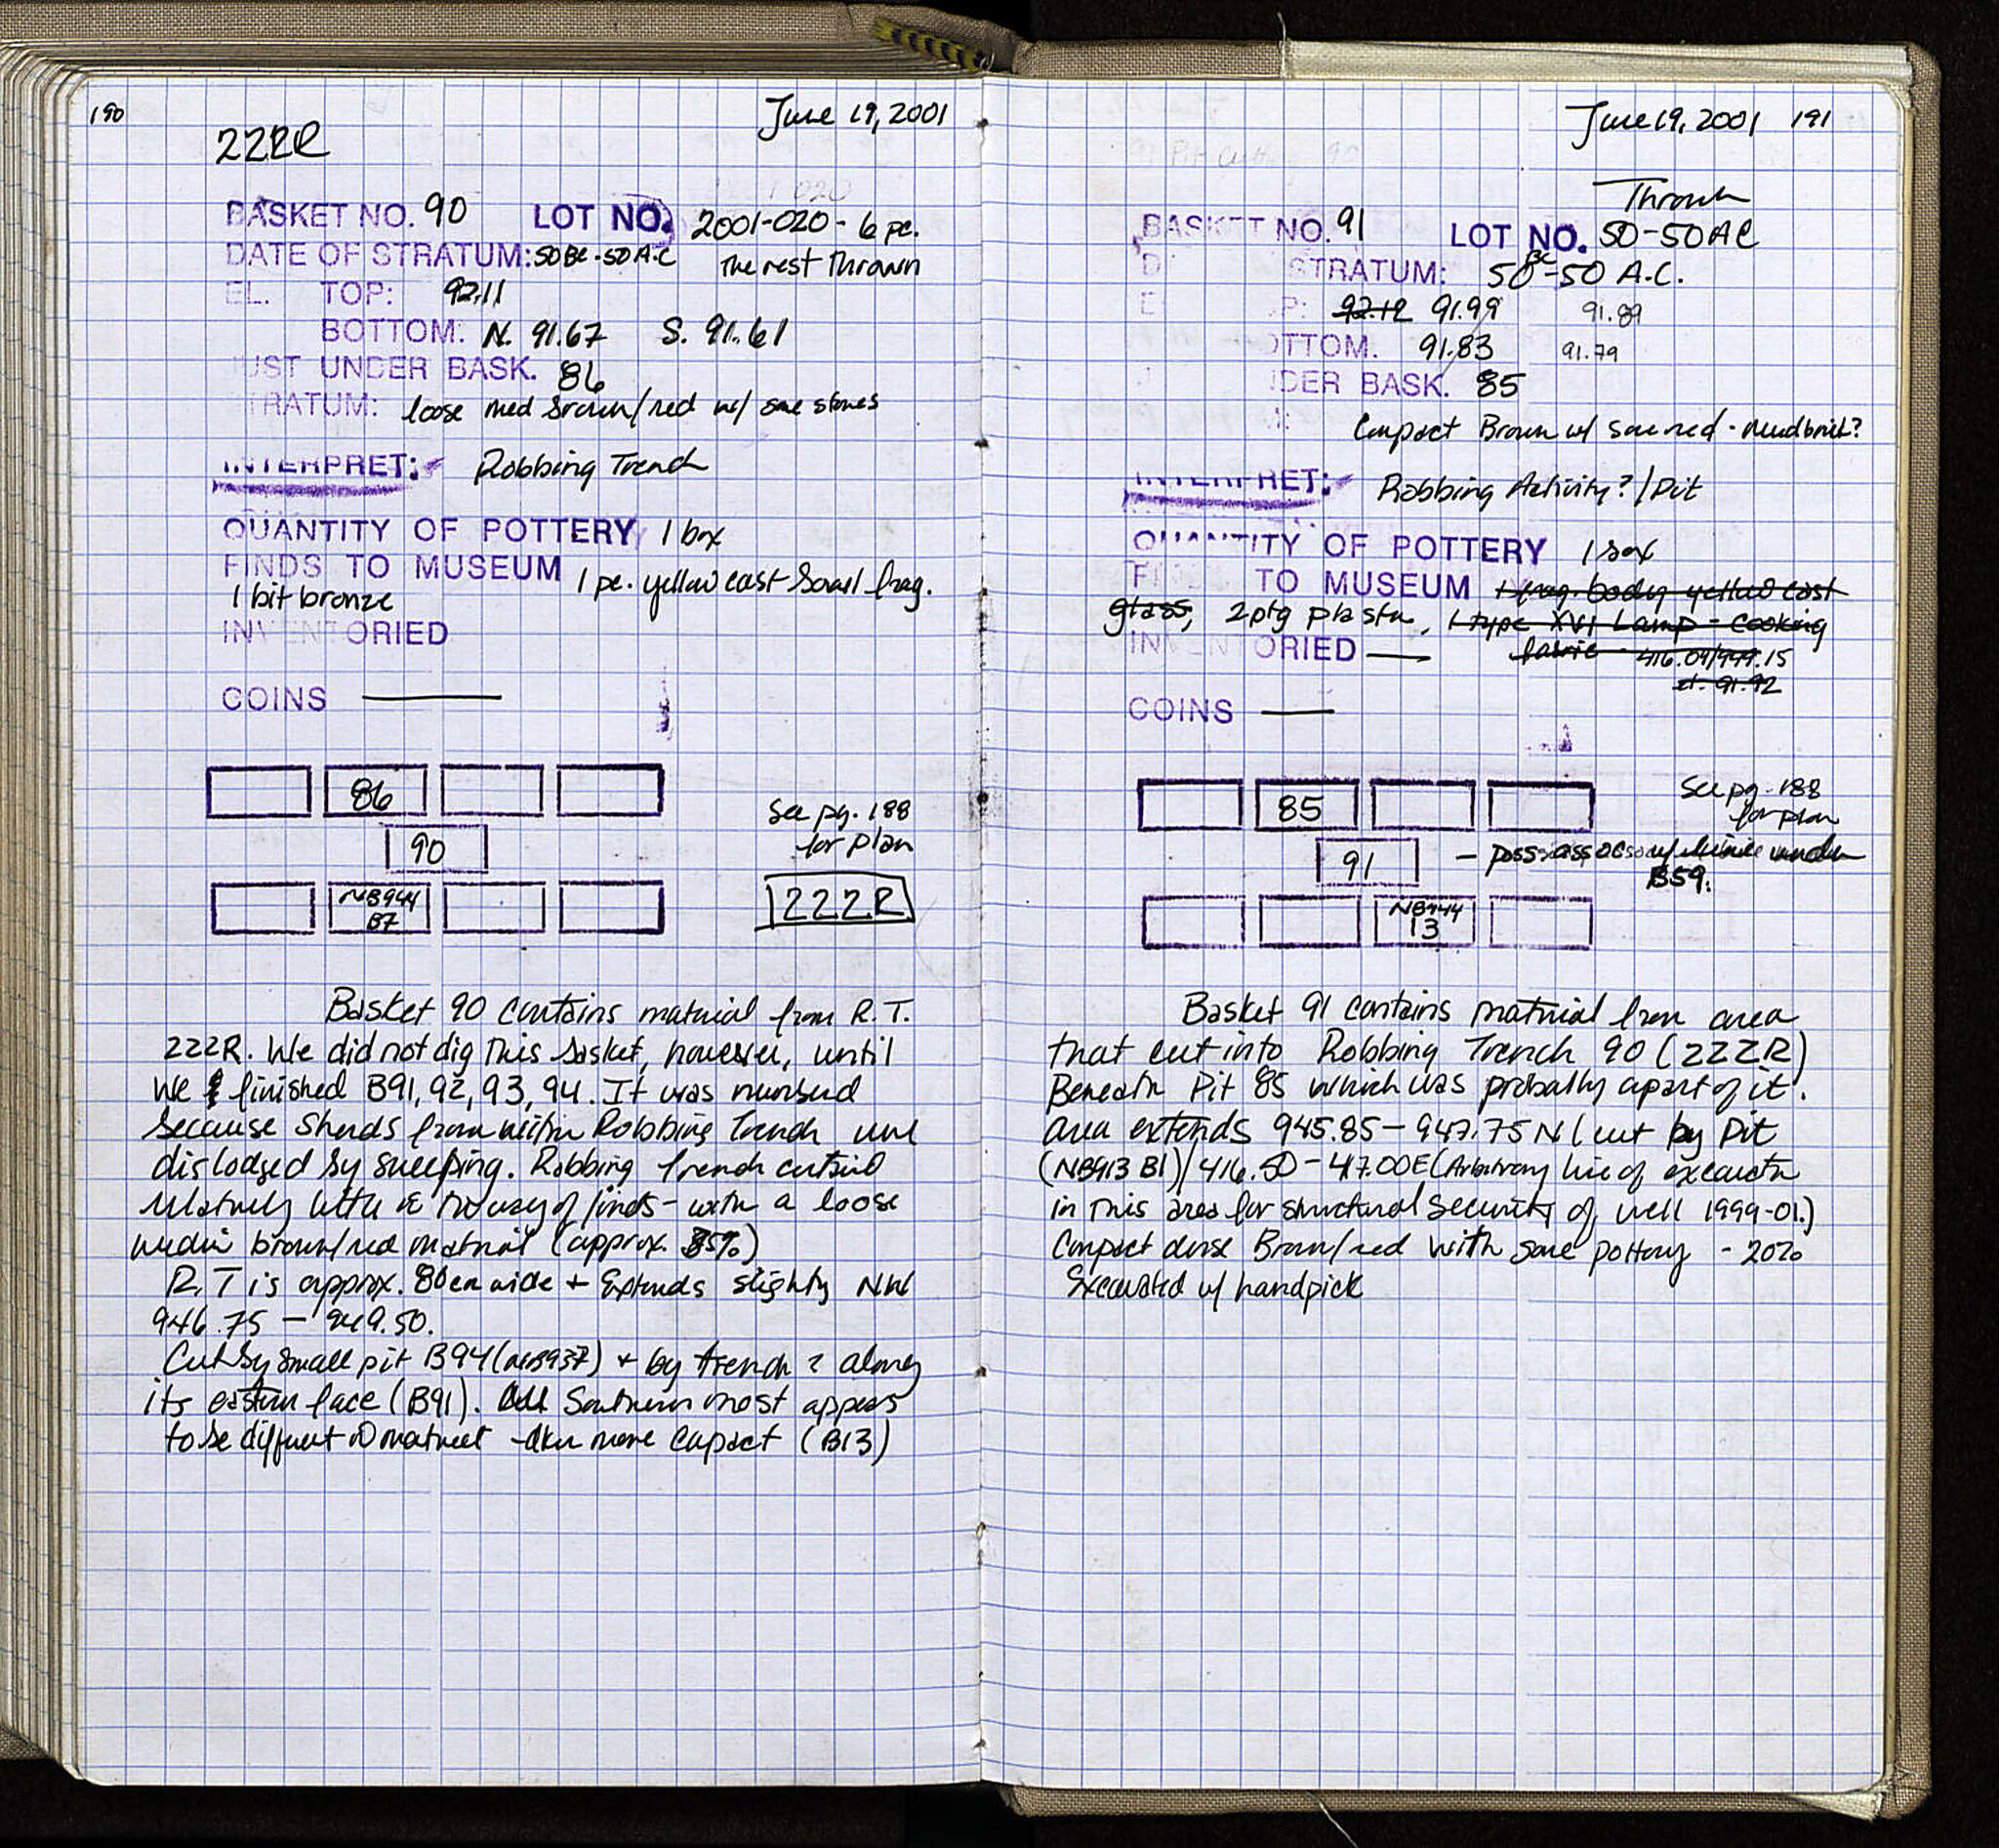 190
June 19, 2001
222R
BASKET NO. 90 LOT NO. 2001-020 - 6 pc.
DATE OF STRATUM: 50 BC - 50 A.C The rest Thrown
EL. TOP: 92.11
BOTTOM: N. 91.67 S. 91.61
JUST UNDER BASK. 86
STRATUM: loose med brown/red w/ some stones
INTERPRET: Robbing Trench
QUANTITY OF POTTERY 1 box
FINDS TO MUSEUM 1 pc. yellow cast bowl frag.
1 bit bronze
INVENTORIED
COINS
86
90
NB944
B7
See pg. 188
for plan
222R
Basket 90 contains material from R.T.
222R. We did not dig this basket, however, until
we finished B91, 92, 93, 94. It was numbered
because sherds from within Robbing Trench were
dislodged by sweeping. Robbing trench contained
relatively little in the way of finds - with a loose
medium brown/red material (approx. 85%)
R.T is approx. 80cm wide + Extends slightly NW
946.75 - 949.50.
Cut by small pit B94 (NB937) + by trench ? along
its eastern face (B91). Southern most appears
to be different material - more compact (B13)
June 19, 2001 191
Thrown
BASKET NO. 91 LOT NO. 50-50 AC
STRATUM: 50 BC - 50 A.C.
P: 92.12 91.99 91.89
OTTOM. 91.83 91.79
DER BASK. 85
Compact Brown w/ some red - mudbrick?
INTERPRET: Robbing Activity? / Pit
QUANTITY OF POTTERY 1 box
TO MUSEUM 1 frag. body yellow cast
glass, 2 ptg plaster, 1 type XVI Lamp - Cooking
INVENTORIED fabric 416.04/949.15
el. 91.92
COINS
85
91
NB944
13
See pg. 188
for plan
- poss. assoc. w/ under
B59.
Basket 91 contains material from area
that cut into Robbing Trench 90 (222R)
Beneath Pit 85 which was probably a part of it.
Area extends 945.85 - 947.75 N (cut by Pit
(NB913 B1) / 416.50 - 417.00E (Arbitrary line of excavation
in this area for structural security of well 1999-01.)
Compact dense Brown/red with some pottery - 20%
Excavated w/ handpick